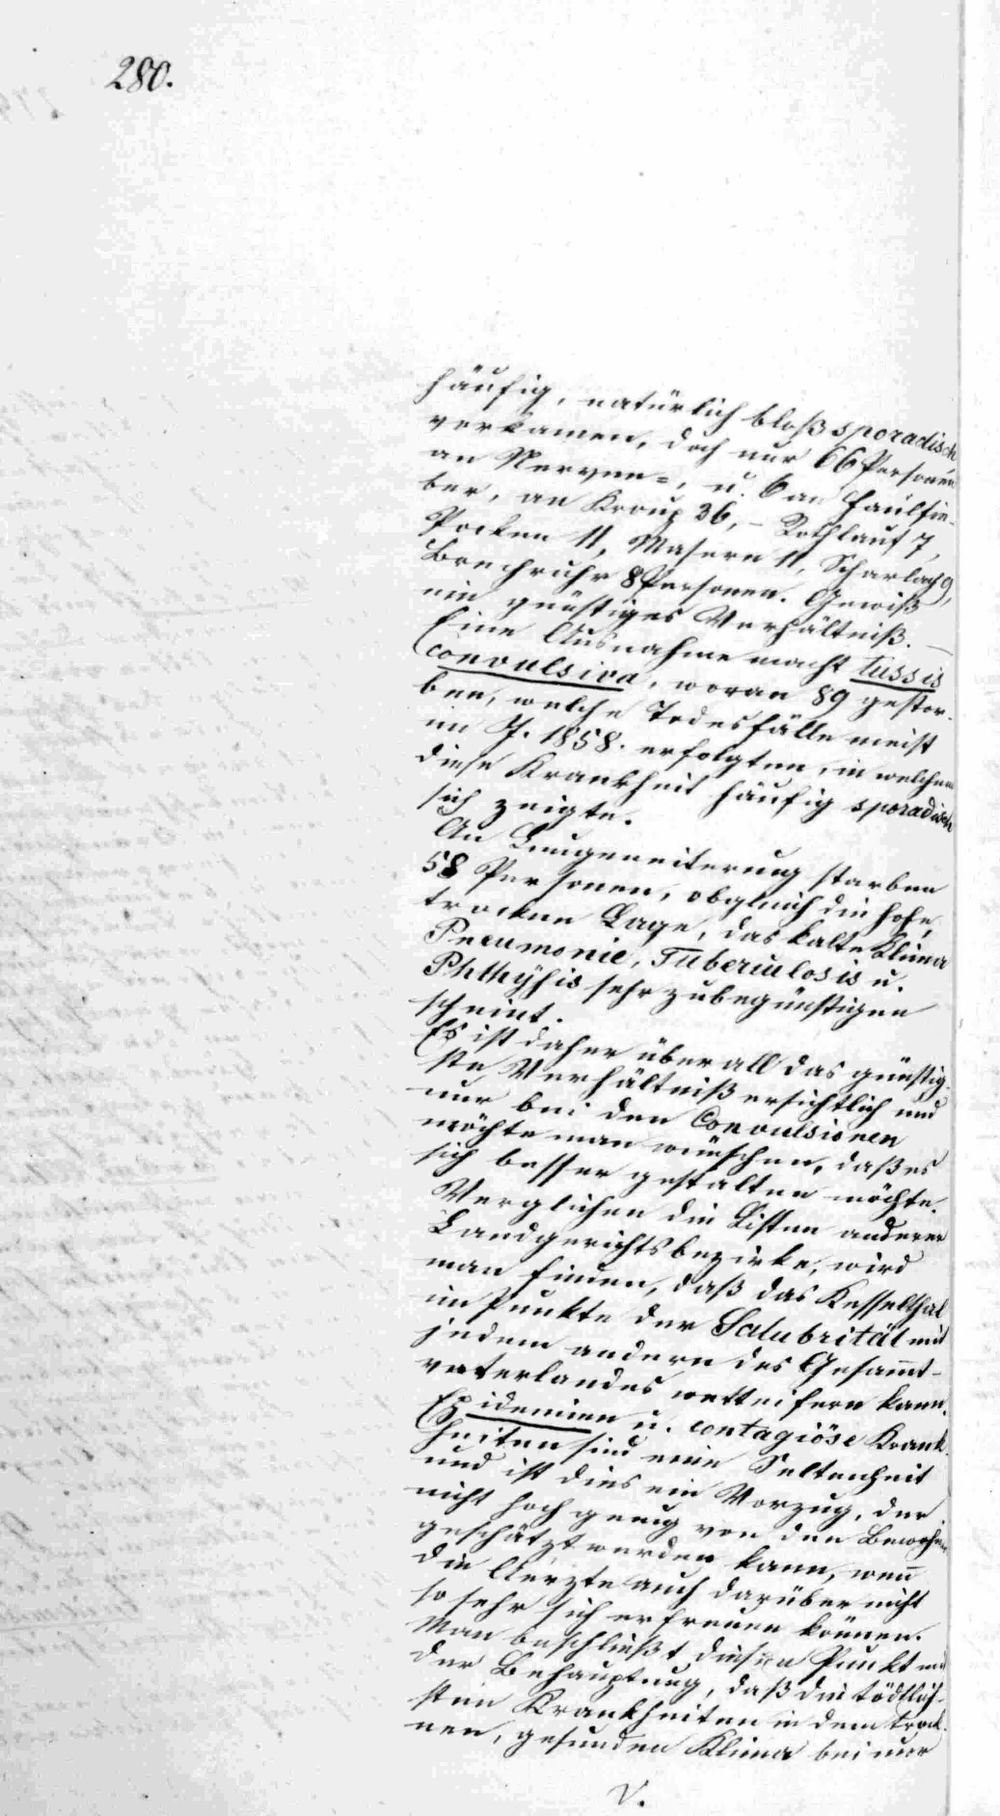 280.
häufig, natürlich bloß sporadisch
vorkamen, doch nur 66 Personen
an Nerven=, u. 6 an Faulfie-
ber, an Kroup 36, – Rothlauf 7,
Pocken 11, Masern 11, Scharlach 9,
Brechruhr 8 Personen. Gewiß
ein günstiges Verhältniß. –
Eine Ausnahme macht tussis
convulsiva, woran 89 gestor-
ben, welche Todesfälle meist
im J. 1858. erfolgten, in welchem
diese Krankheit häufig sporadisch
sich zeigte.
An Lungeneiterung starben
58 Personen, obgleich die hohe,
trockne Lage, das kalte Klima
Pneumonie, Tuberculosis u.
Phthysis sehr zu begünstigen
scheint.
Es ist daher überall das günstig-
ste Verhältniß ersichtlich und
nur bei den Convulsionen
möchte man wünschen, daß es
sich besser gestalten möchte.
Verglichen die Listen anderer
Landgerichtsbezirke, wird
man finden, daß das Kesselthal
im Punkte der Salubrität mit
jedem andern des Gesam̅t-
vaterlandes wetteifern kann.
Epidemien u. contagiöse Krank-
heiten sind eine Seltenheit
und ist dies ein Vorzug, der
nicht hoch genug von den Bewohnern
geschätzt werden kann, wen̅
die Aerzte auch darüber nicht
so sehr sich erfreuen können.
Man beschließt diesen Punkt mit
der Behauptung, daß die tödtlich-
sten Krankheiten in dem trock-
nen, gesunden Klima bei nur
V.